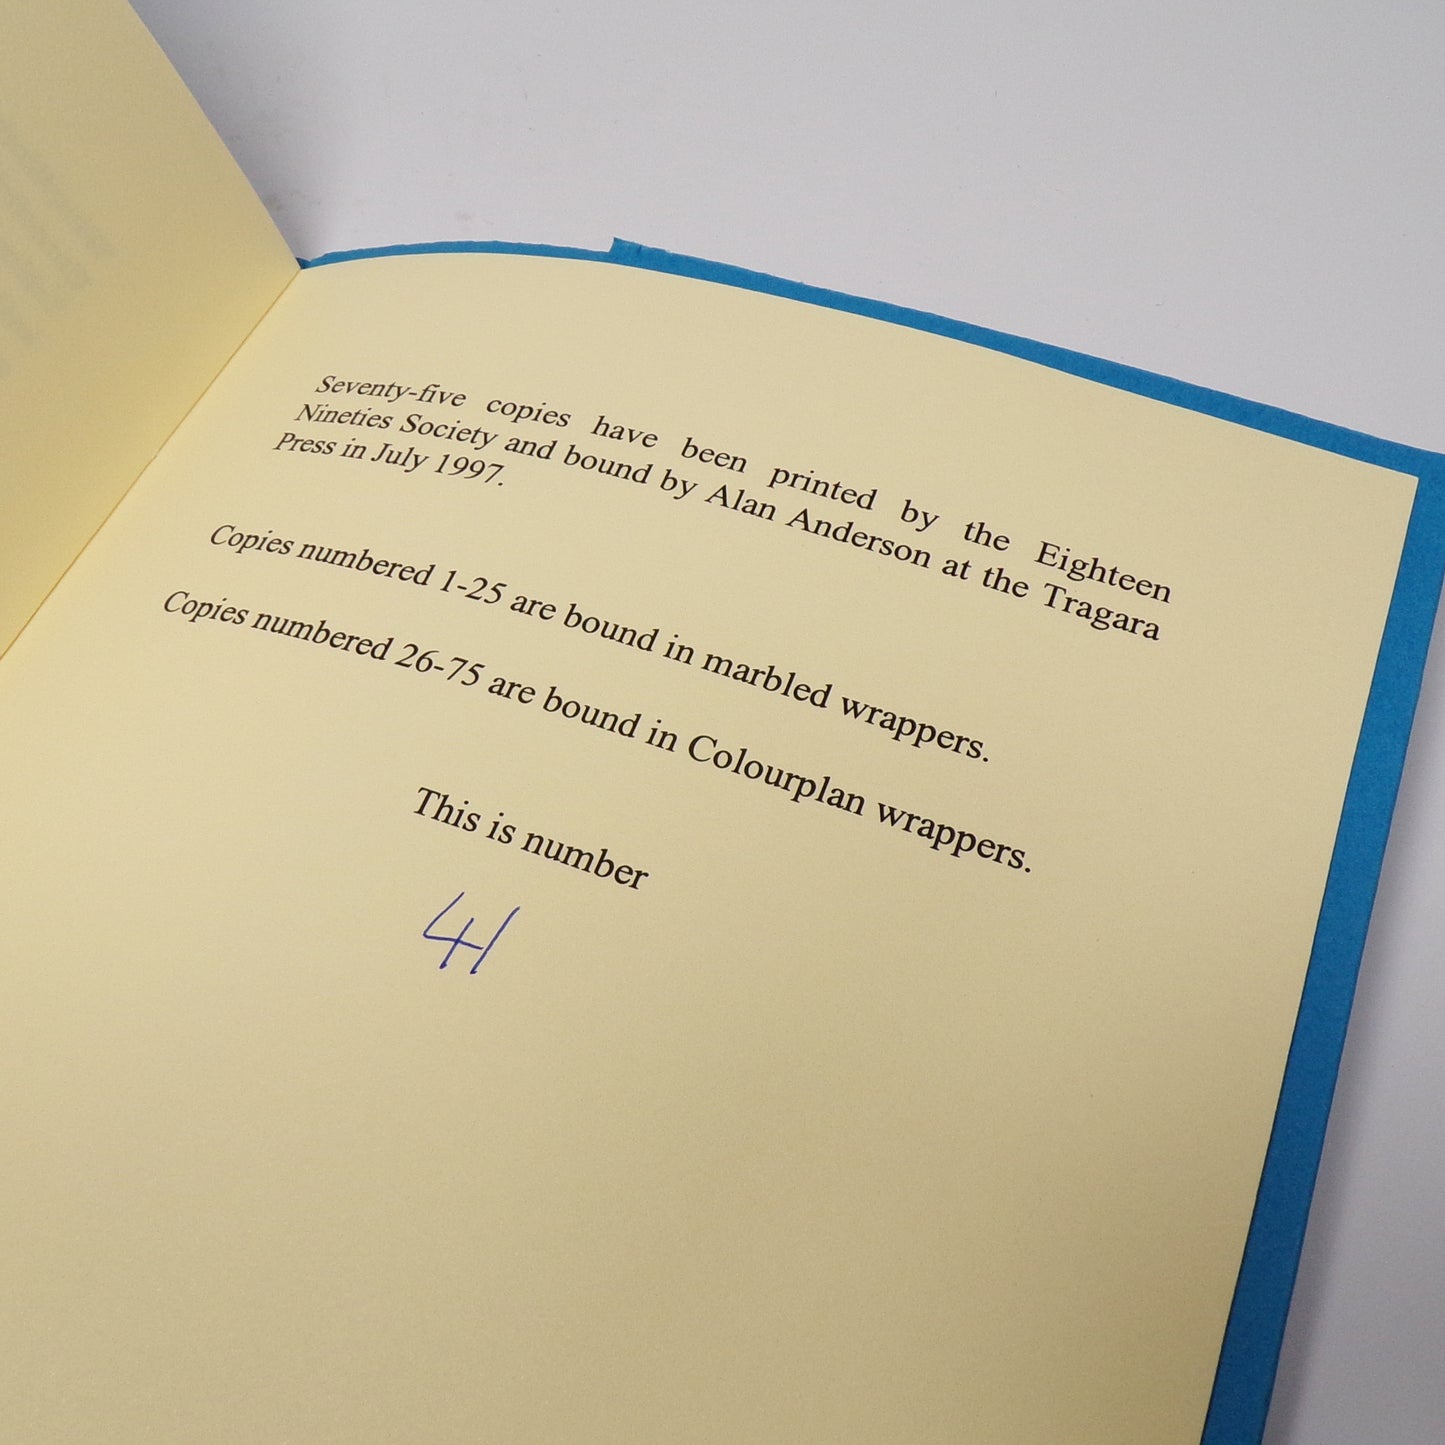 Seventy-five copies have been printed by the Eighteen
Nineties Society and bound by Alan Anderson at the Tragara
Press in July 1997.
Copies numbered 1-25 are bound in marbled wrappers.
Copies numbered 26-75 are bound in Colourplan wrappers.
This is number
41